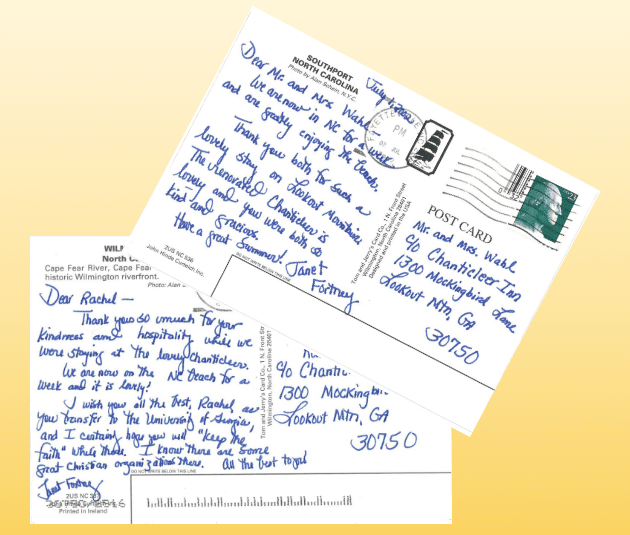 SOUTHPORT
NORTH CAROLINA
Photo by Alan Schein, N.Y.C.
July 1, 2002
Dear Mr. and Mrs. Wahl -
We are now in NC for a week
and are greatly enjoying the beach.
Thank you both for such a
lovely stay on Lookout Mountain.
The renovated Chanticleer is
lovely and you were both so
kind and gracious.
Have a great summer!
Janet
Fortney
PM
Tom and Jerry's Card Co., 1 N. Front Street
Wilmington, North Carolina 28401
Designed and printed in the USA
DO NOT WRITE BELOW THIS LINE
POST CARD
Mr. and Mrs. Wahl
c/o Chanticleer Inn
1300 Mockingbird Lane
Lookout Mtn, GA
30750
WILM
North C
Cape Fear River, Cape Fear
historic Wilmington riverfront.
Photo: Alan S
2US NC 536
John Hinde Curteich Inc.
Dear Rachel —
Thank you so much for your
kindness and hospitality while we
were staying at the lovely Chanticleer.
We are now on the NC beach for a
week and it is lovely!
I wish you all the best, Rachel, as
you transfer to the University of Georgia,
and I certainly hope you will "keep the
faith" while there. I know there are some
great Christian organizations there. All the best to you!
Janet Fortney
2US NC 317
Printed in Ireland
Tom and Jerry's Card Co., 1 N. Front Str
Wilmington, North Carolina 28401
c/o Chantic
1300 Mockingbir
Lookout Mtn, GA
30750
DO NOT WRITE BELOW THIS LINE